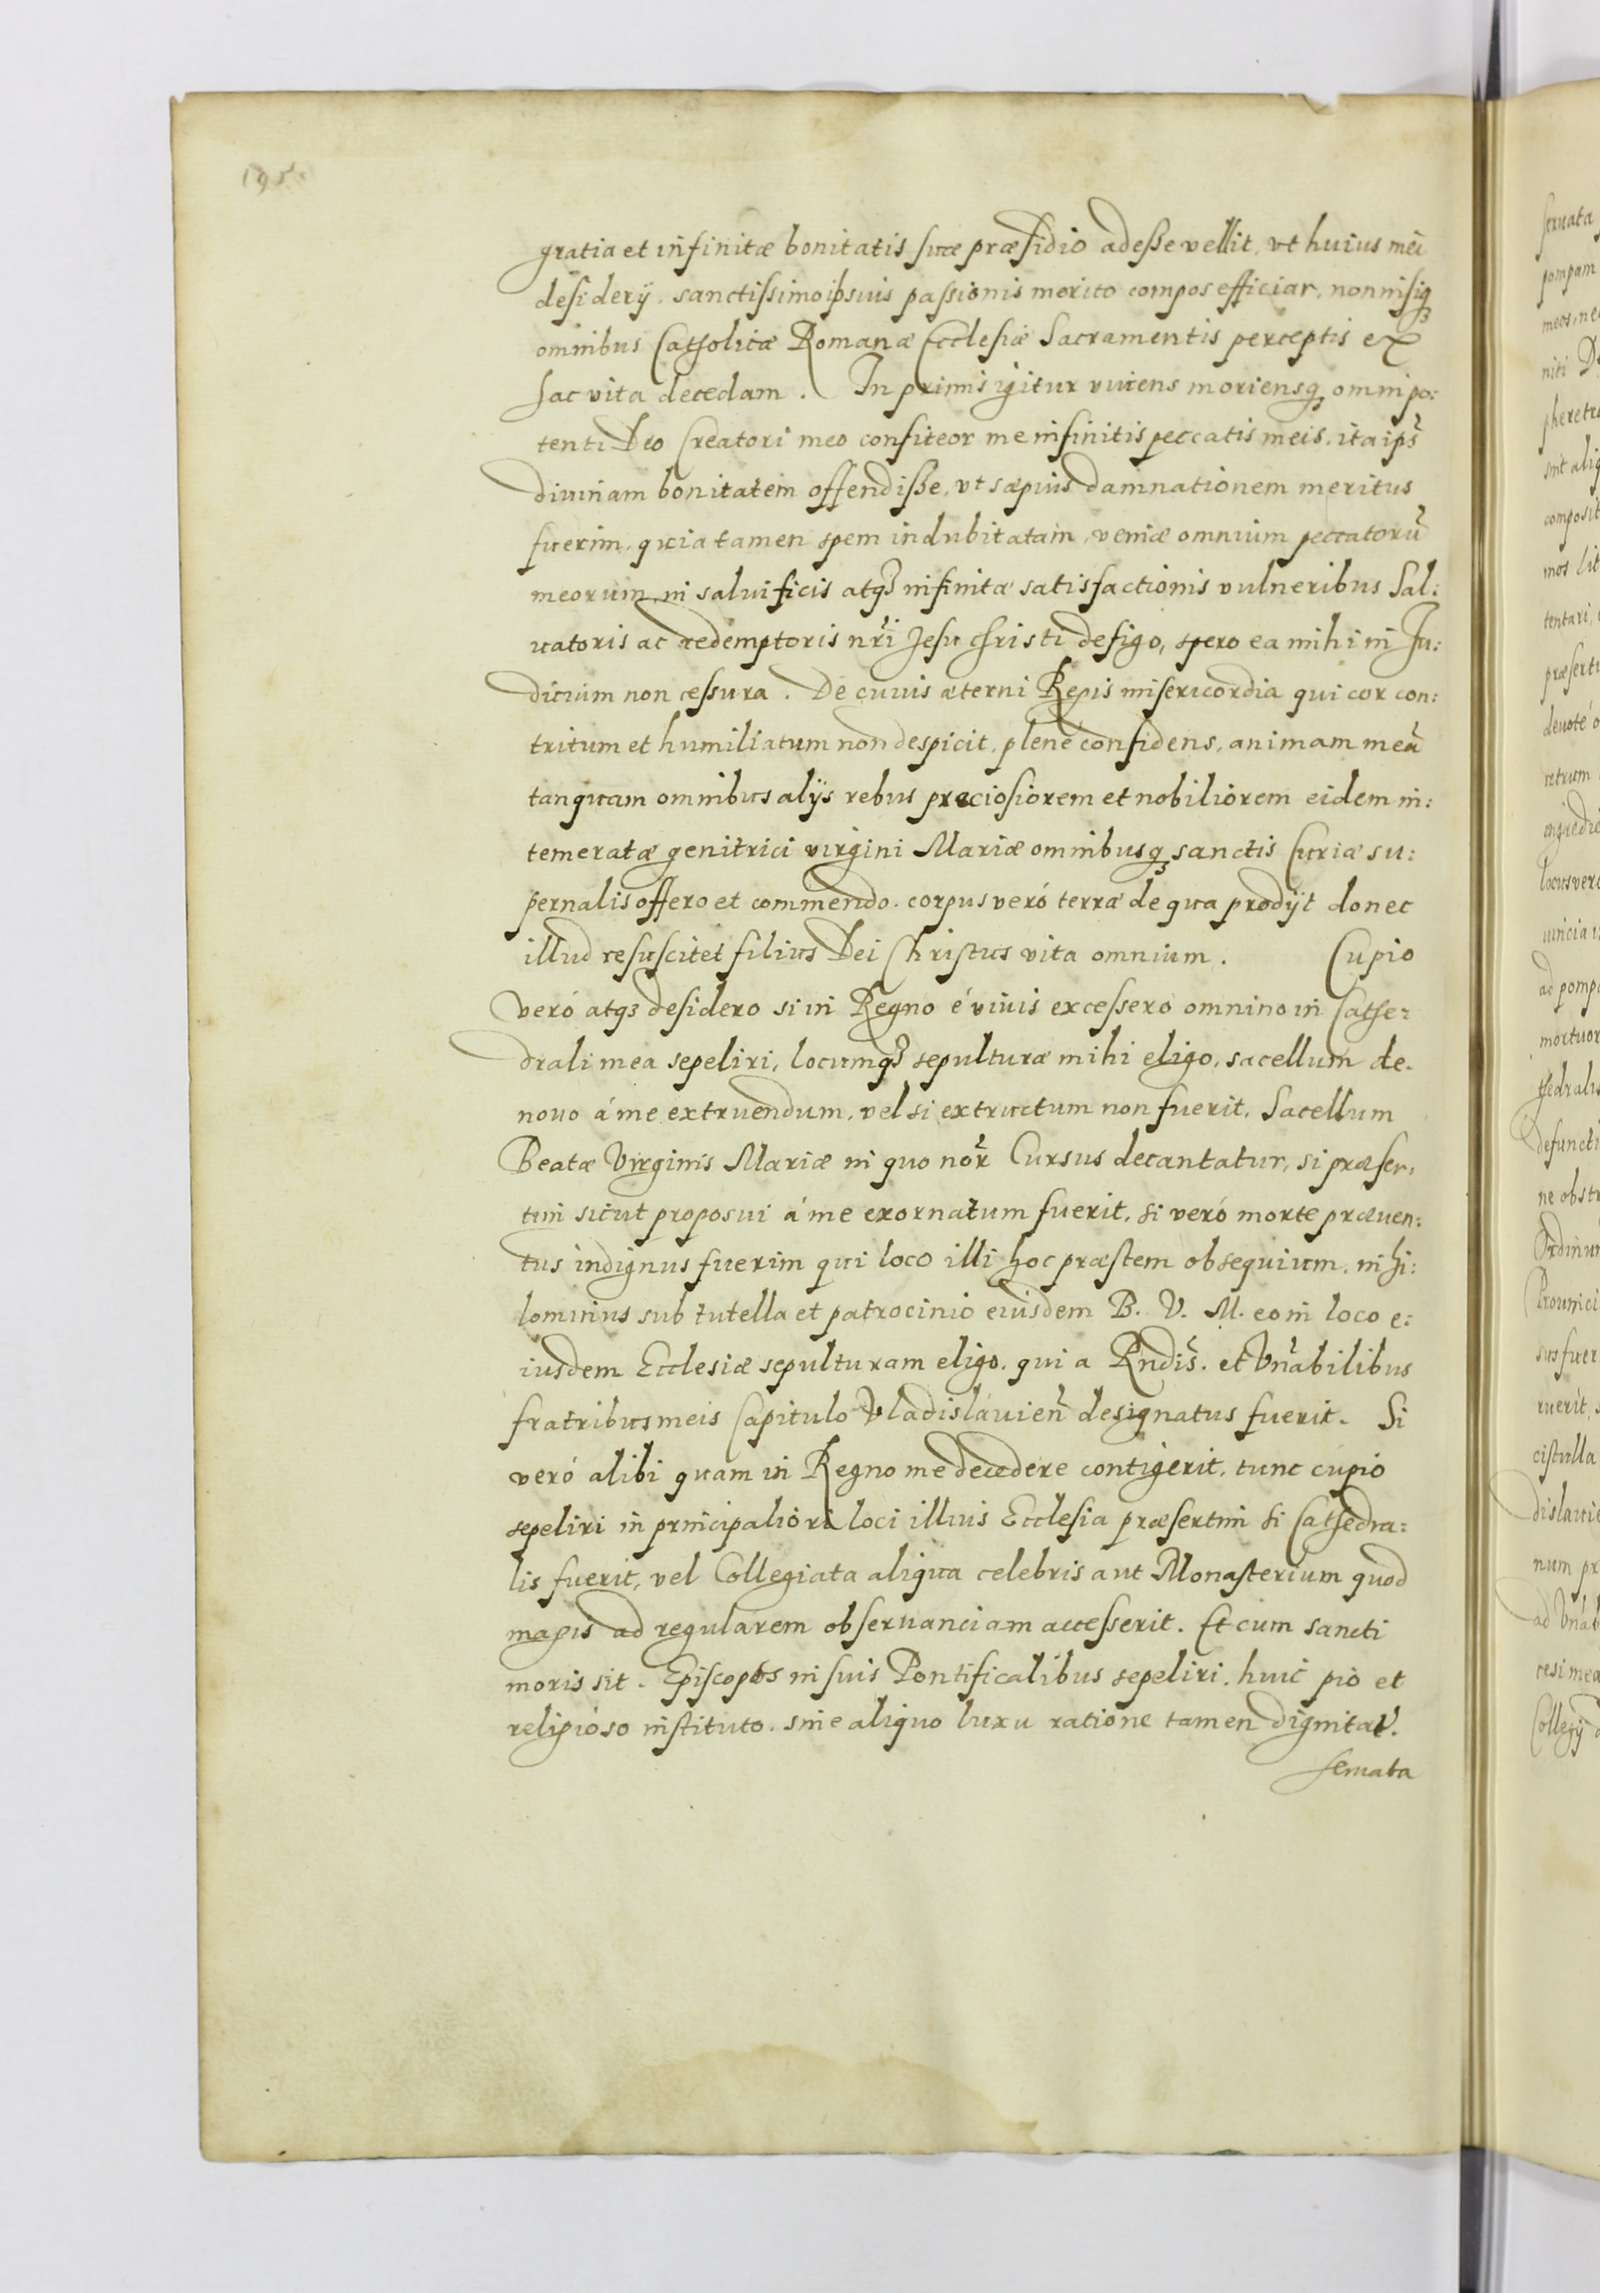 gratia et infinitæ bonitatis suæ præsidio adesse vellit, vt huius mei
desiderij, sanctissimo ipsius passionis merito compos efficiar, non nisiq3
omnibus Catholicæ Romanæ Ecclesiæ Sacramentis perceptis ex
hac vita decedam. In primis igitur viuens moriensq3 omnipo:
tenti Deo Creatori meo confiteor me infinitis peccatis meis, ita ips̃
diuinam bonitatem offendisse, vt sæpius damnationem meritus
fuerim, quia tamen spem indubitatam, veniæ omnium peccatorũ
meorum in saluificis atq3 infinitæ satisfactionis vulneribus Sal:
uatoris ac redemptoris nr̃i Jesu Christi defigo, spero ea mihi in Ju:
dicium non cessura. De cuius æterni Regis misericordia qui cor con:
tritum et humiliatum non despicit, plené confidens, animam meã
tanquam omnibus alijs rebus preciosiorem et nobiliorem eidem in:
temeratæ genitrici virgini Mariæ omnibusq3 sanctis Curiæ su:
pernalis offero et commendo, corpus veró terræ de qua prodijt donec
illud resuscitet filius Dei Christus vita omnium. Cupio
veró atq3 desidero si in Regno é viuis excessero omnino in Cathe:
drali mea sepeliri, locumq3 sepulturæ mihi eligo, sacellum de.
nouo á me extruendum, vel si extructum non fuerit, Sacellum
Beatæ Virginis Mariæ in quo nor̃ Cursus decantatur, si præser,
tim sicut proposui á me exornatum fuerit, si veró morte præuen:
tus indignus fuerim qui loco illi hoc præstem obsequium, nihi:
lominus sub tutella et patrocinio eiusdem B. V. M. eo in loco e:
iusdem Ecclesiæ sepulturam eligo, qui a Rndis̃. et Vñabilibus
fratribus meis Capitulo Vladislauien̄ designatus fuerit. Si
veró alibi quam in Regno me decedere contigerit, tunc cupio
sepeliri in principaliori loci illius Ecclesia præsertim si Cathedra:
lis fuerit, vel Collegiata aliqua celebris aut Monasterium quod
magis ad regularem obseruanciam accesserit. Et cum sancti
moris sit. Episcopos in suis Pontificalibus sepeliri, huic pio et
religioso instituto, sine aliquo luxu ratione tamen dignitat̃.
seruata